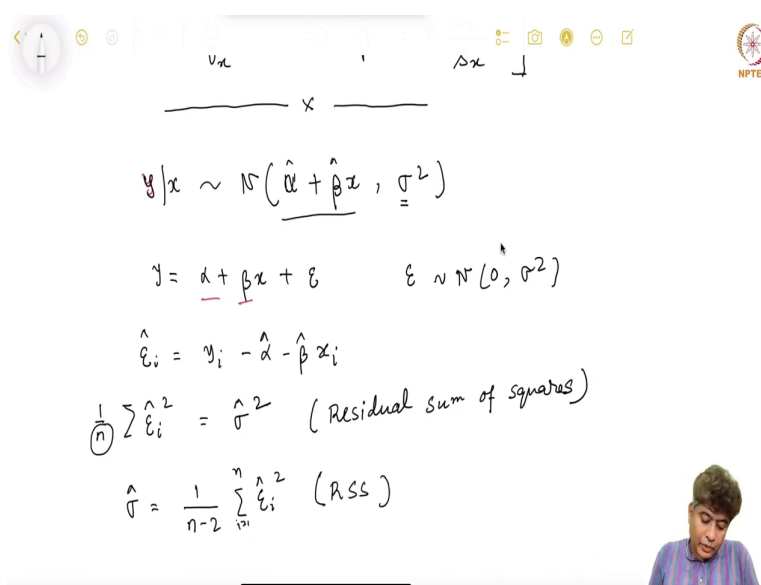 NPTEL
x
y|x ~ N(α̂ + β̂x, σ²)
y = α + βx + ε ε ~ N(0, σ²)
ε̂ᵢ = yᵢ - α̂ - β̂ xᵢ
1/n Σ ε̂ᵢ² = σ̂² (Residual sum of squares)
σ̂ = 1/(n-2) Σᵢ₌₁ⁿ ε̂ᵢ² (RSS)